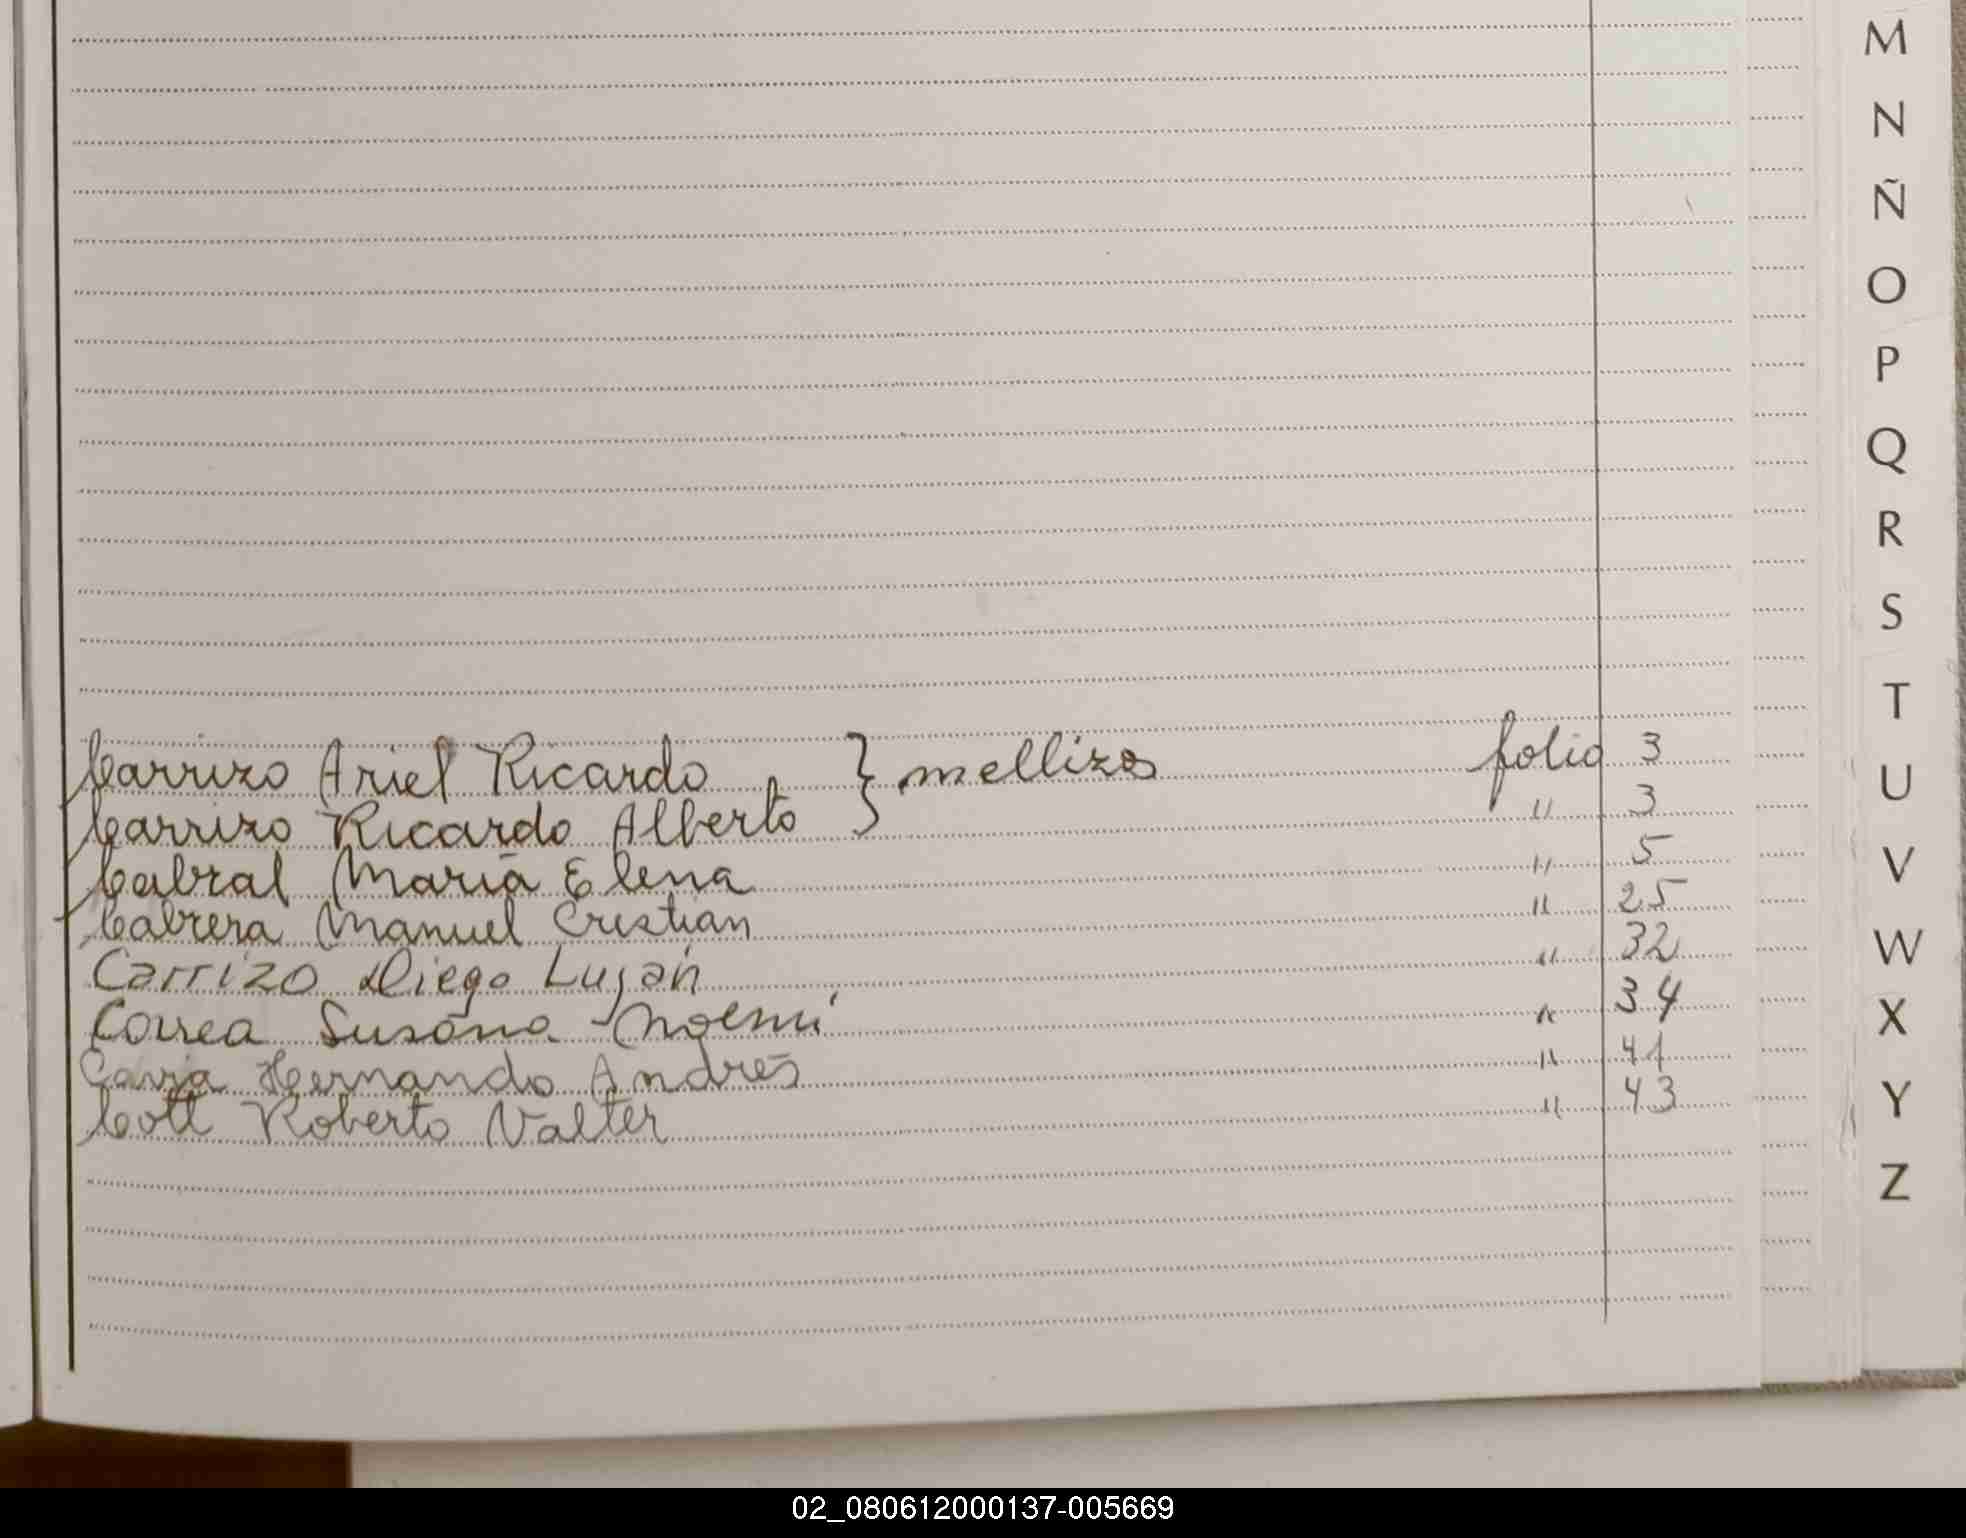 M
N
Ñ
O
P
Q
R
S
T
U
V
W
X
Y
Z
Carrizo Ariel Ricardo } mellizos folio 3
Carrizo Ricardo Alberto " 3
Cabral María Elena " 5
Cabrera Manuel Cristian " 25
Carrizo Diego Luján " 32
Correa Susana Noemí " 34
Hernando Andrés " 41
Coll Roberto Valter " 43
02_080612000137-005669